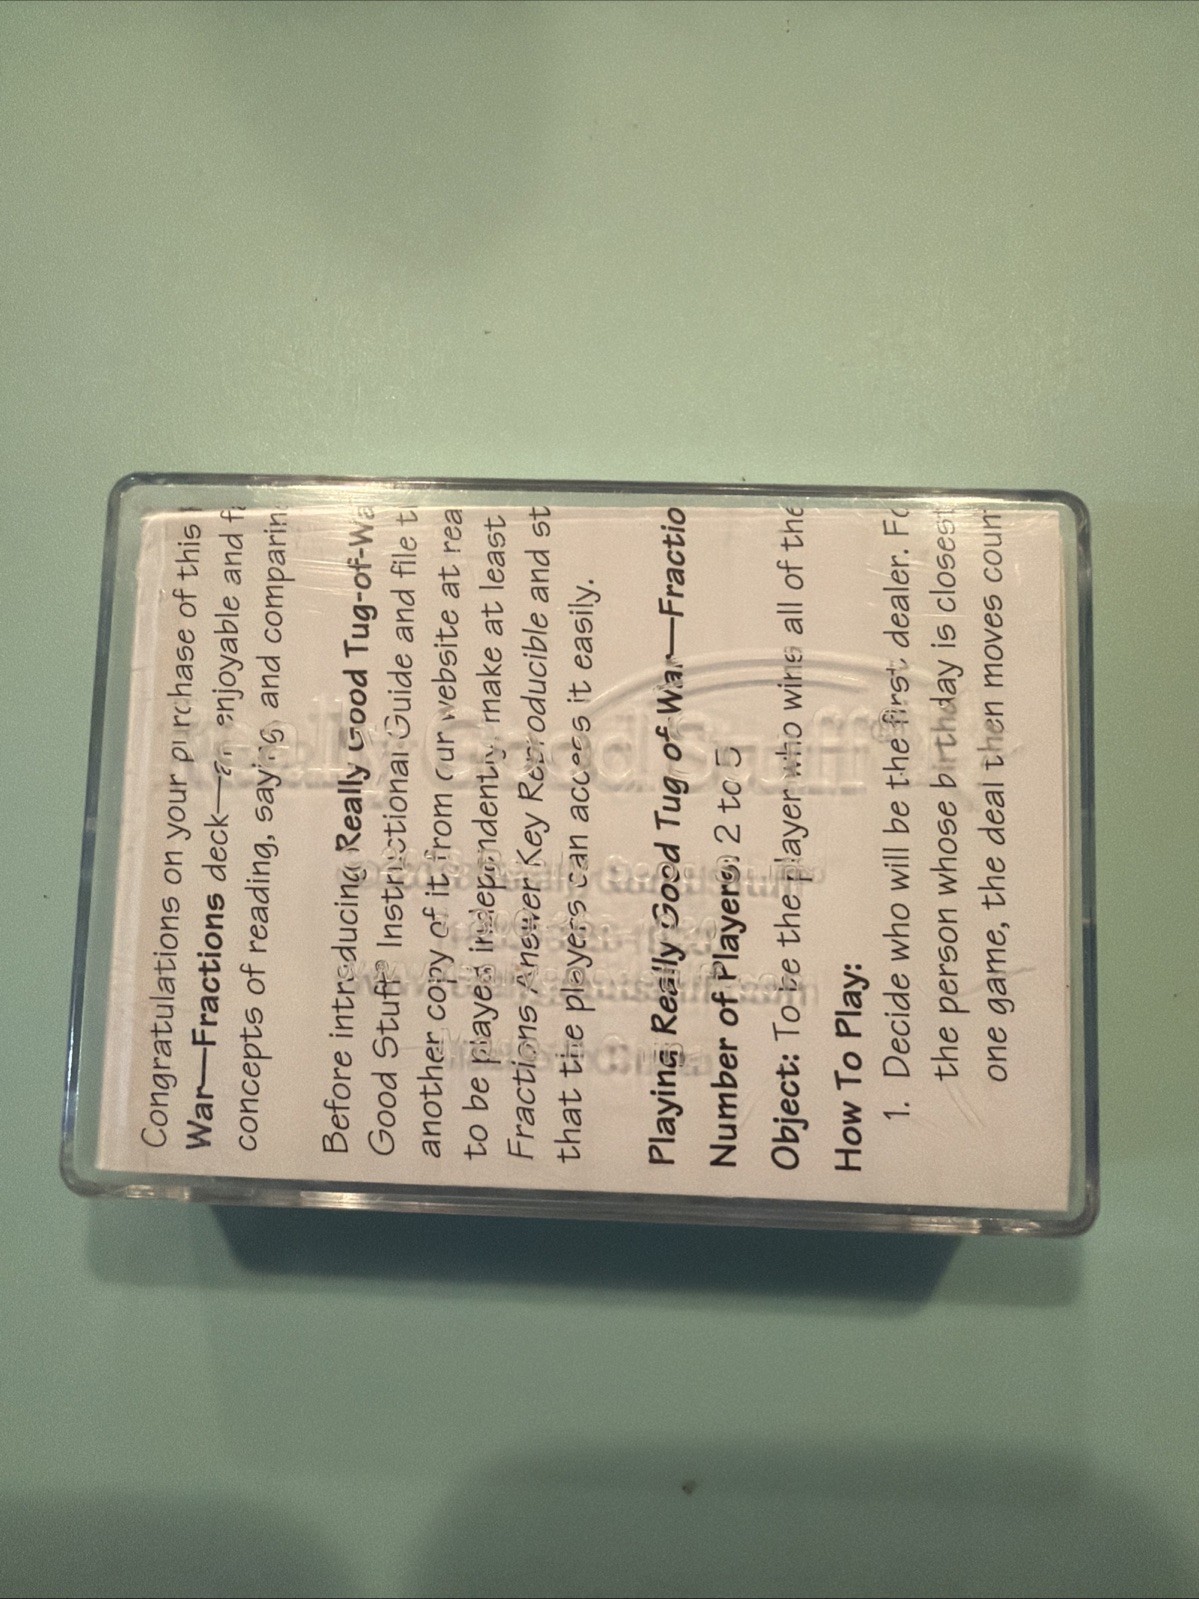 Congratulations on your purchase of this
War—Fractions deck—an enjoyable and
concepts of reading, saying, and comparin
Before introducing Really Good Tug-of-Wa
Good Stuff® Instructional Guide and file t
another copy of it from our website at rea
to be played independently, make at least
Fractions Answer Key Reproducible and st
that the players can access it easily.
Playing Really Good Tug of War—Fractio
Number of Players: 2 to 5
Object: To be the player who wins all of the
How To Play:
1. Decide who will be the first dealer. Fo
the person whose birthday is closest
one game, the deal then moves coun
Really Good Stuff®
www.reallygoodstuff.com
Made in China